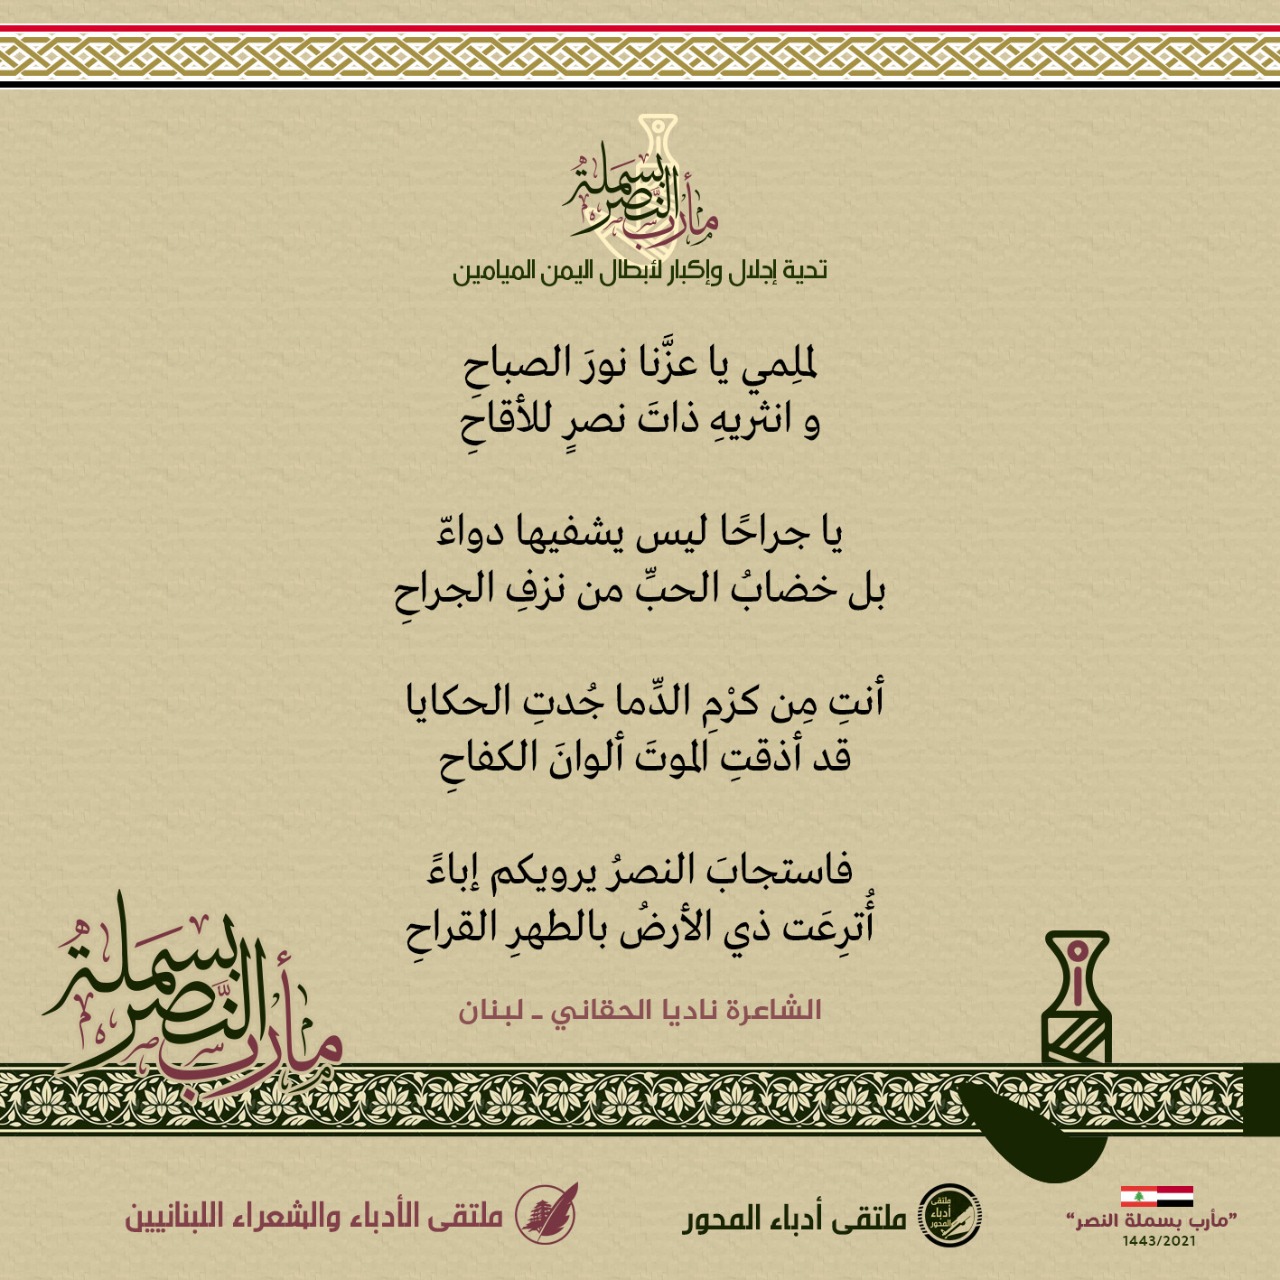 مأرب بسملة النصر
تحية إجلال وإكبار لأبطال اليمن الميامين
لملِمي يا عزَّنا نورَ الصباحِ
و انثريهِ ذاتَ نصرٍ للأقاحِ
يا جراحًا ليس يشفيها دواءّ
بل خضابُ الحبِّ من نزفِ الجراحِ
أنتِ مِن كرْمِ الدِّما جُدتِ الحكايا
قد أذقتِ الموتَ ألوانَ الكفاحِ
فاستجابَ النصرُ يرويكم إباءً
أُترِعَت ذي الأرضُ بالطهرِ القراحِ
الشاعرة ناديا الحقاني ـ لبنان
مأرب بسملة النصر
”مأرب بسملة النصر“
1443/2021
ملتقى أدباء المحور
ملتقى أدباء المحور
ملتقى الأدباء والشعراء اللبنانيين